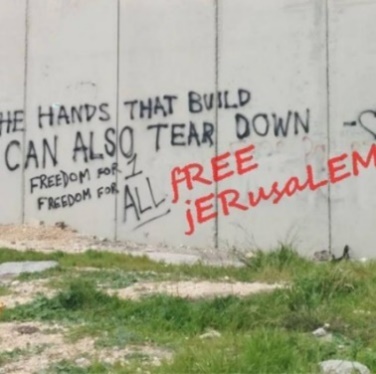 HE HANDS THAT BUILD
CAN ALSO TEAR DOWN -
FREEDOM FOR 1
FREEDOM FOR ALL
fREE
jERusaLEM